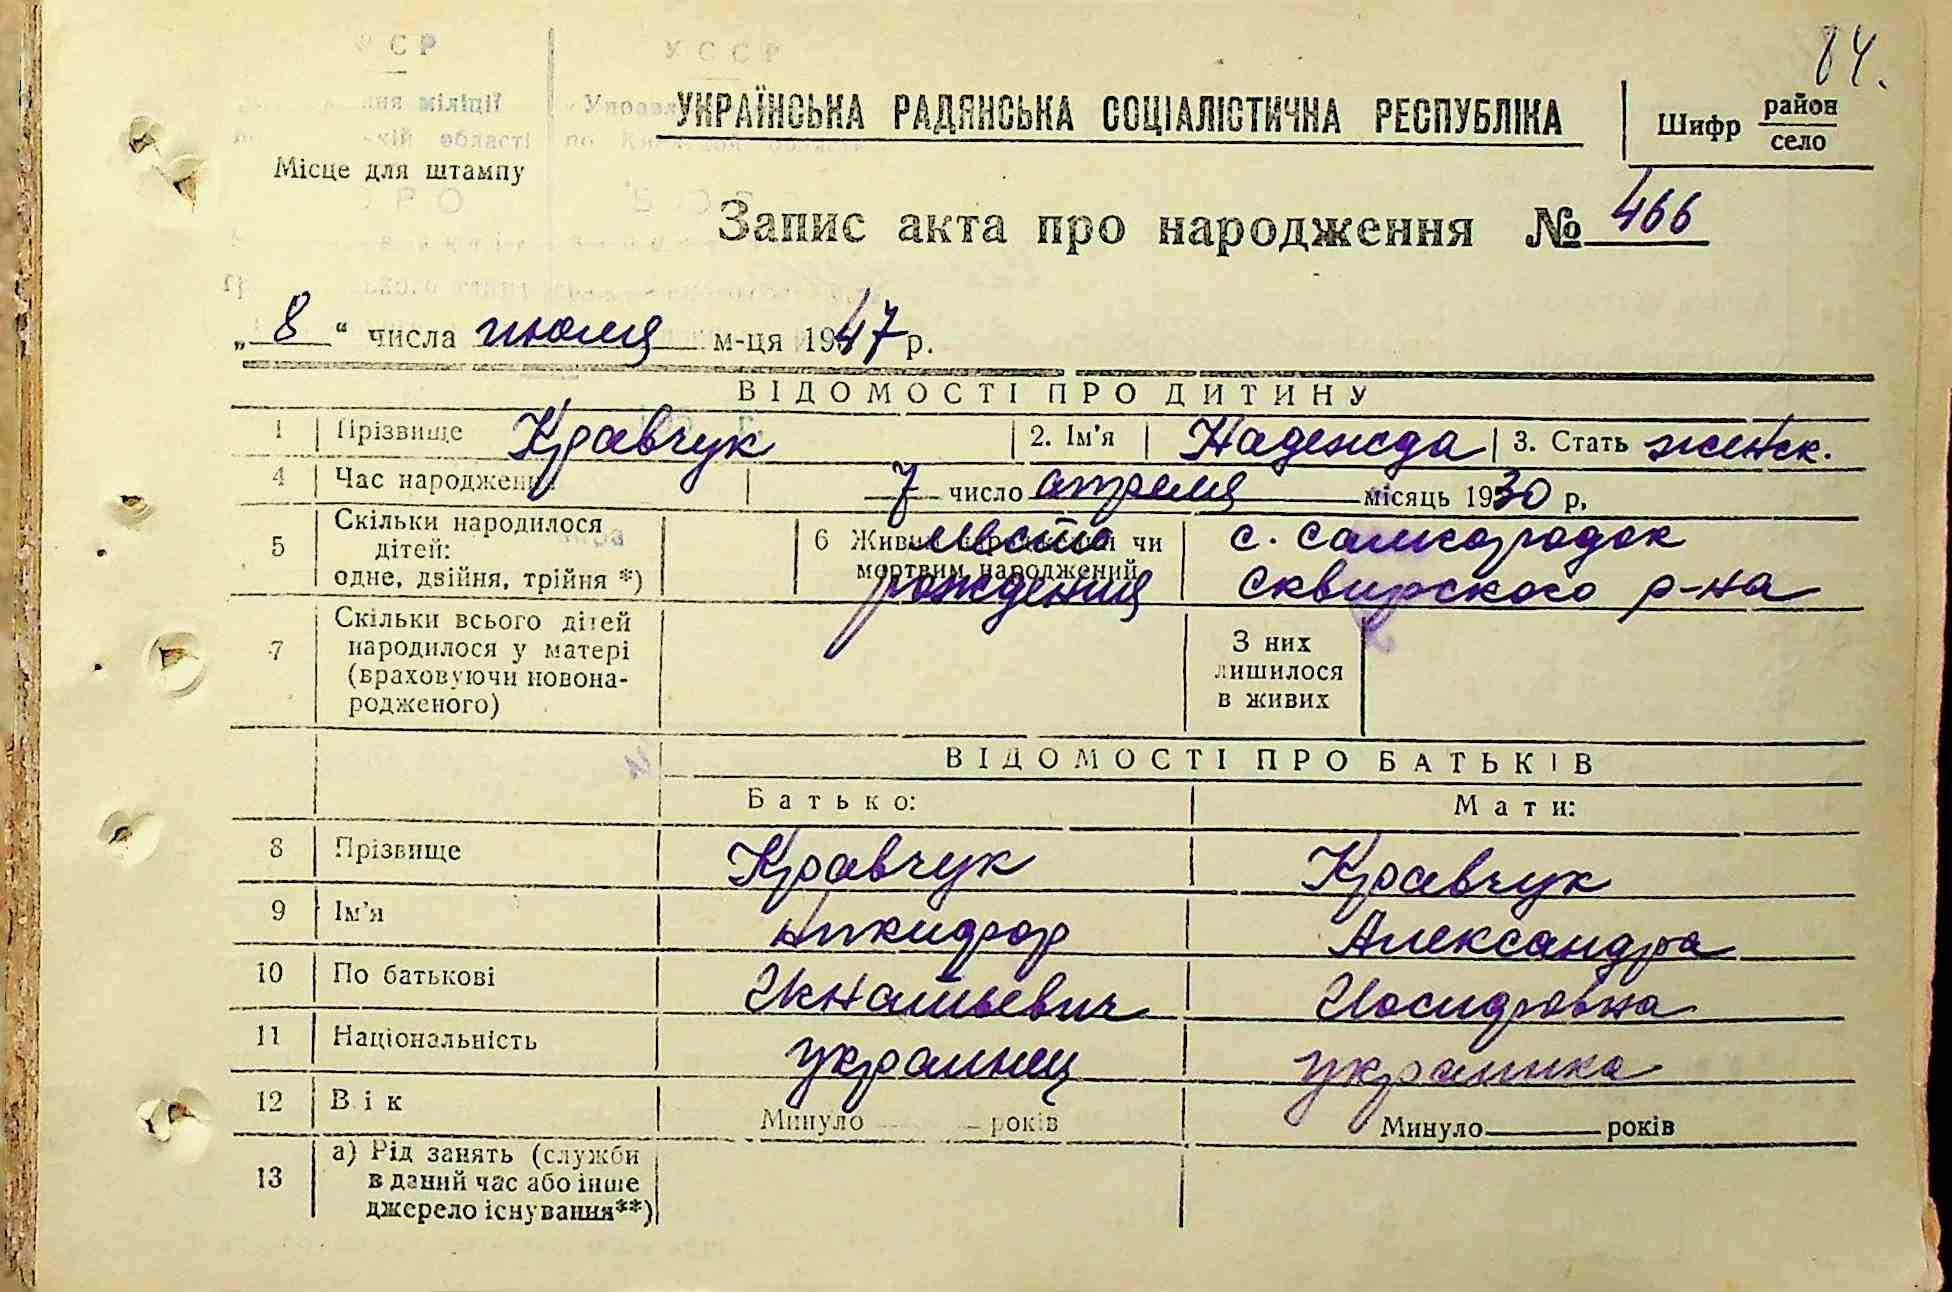 84.
УКРАЇНСЬКА РАДЯНСЬКА СОЦІАЛІСТИЧНА РЕСПУБЛІКА
Шифр район
село
Місце для штампу
Запис акта про народження № 466
„ 8 “ числа июля м-ця 1947 р.
ВІДОМОСТІ ПРО ДИТИНУ
1 Прізвище Кравчук 2. Ім'я Надежда 3. Стать женск.
4 Час народження 7 число апреля місяць 1930 р,
5 Скільки народилося дітей: одне, двійня, трійня *)
6 Живим народжений чи мортвим народжений
место рождения
с. Самгородок
Сквирского р-на
7 Скільки всього дітей народилося у матері (враховуючи новонародженого)
З них лишилося в живих
ВІДОМОСТІ ПРО БАТЬКІВ
Батько: Мати:
8 Прізвище Кравчук Кравчук
9 Ім'я Никифор Александра
10 По батькові Игнатьевич Иосифовна
11 Національність украинец украинка
12 Вік Минуло рокiв Минуло років
13 а) Рід занять (служби
в даний час або інше
джерело існування**)